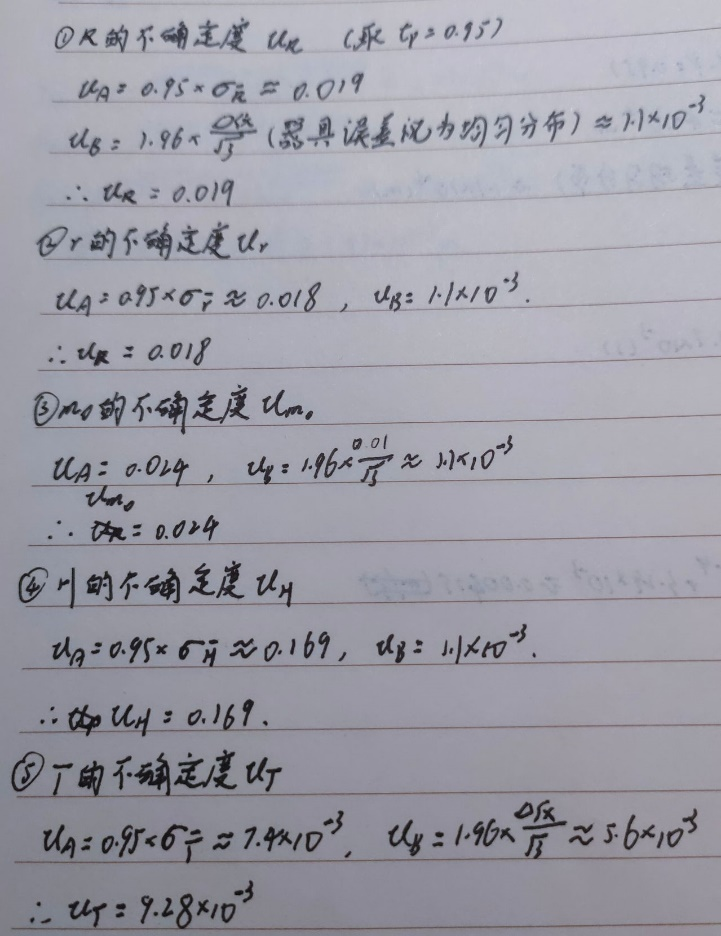 ①R的不确定度 u_R (取 t_p=0.95)
u_A=0.95×σ_R̄≈0.019
u_B=1.96×Δ仪/√3 (器具误差视为均匀分布)≈1.1×10⁻³
∴ u_R=0.019
②r的不确定度u_r
u_A=0.95×σ_r̄≈0.018, u_B=1.1×10⁻³.
∴ u_R=0.018
③m₀的不确定度u_m₀
u_A=0.024, u_B=1.96×0.01/√3≈1.1×10⁻³
∴ u_m₀=0.024
④H的不确定度u_H
u_A=0.95×σ_H̄≈0.169, u_B=1.1×10⁻³.
∴ u_H=0.169.
⑤T的不确定度u_T
u_A=0.95×σ_T̄≈7.4×10⁻³, u_B=1.96×Δ仪/√3≈5.6×10⁻³
∴ u_T=9.28×10⁻³